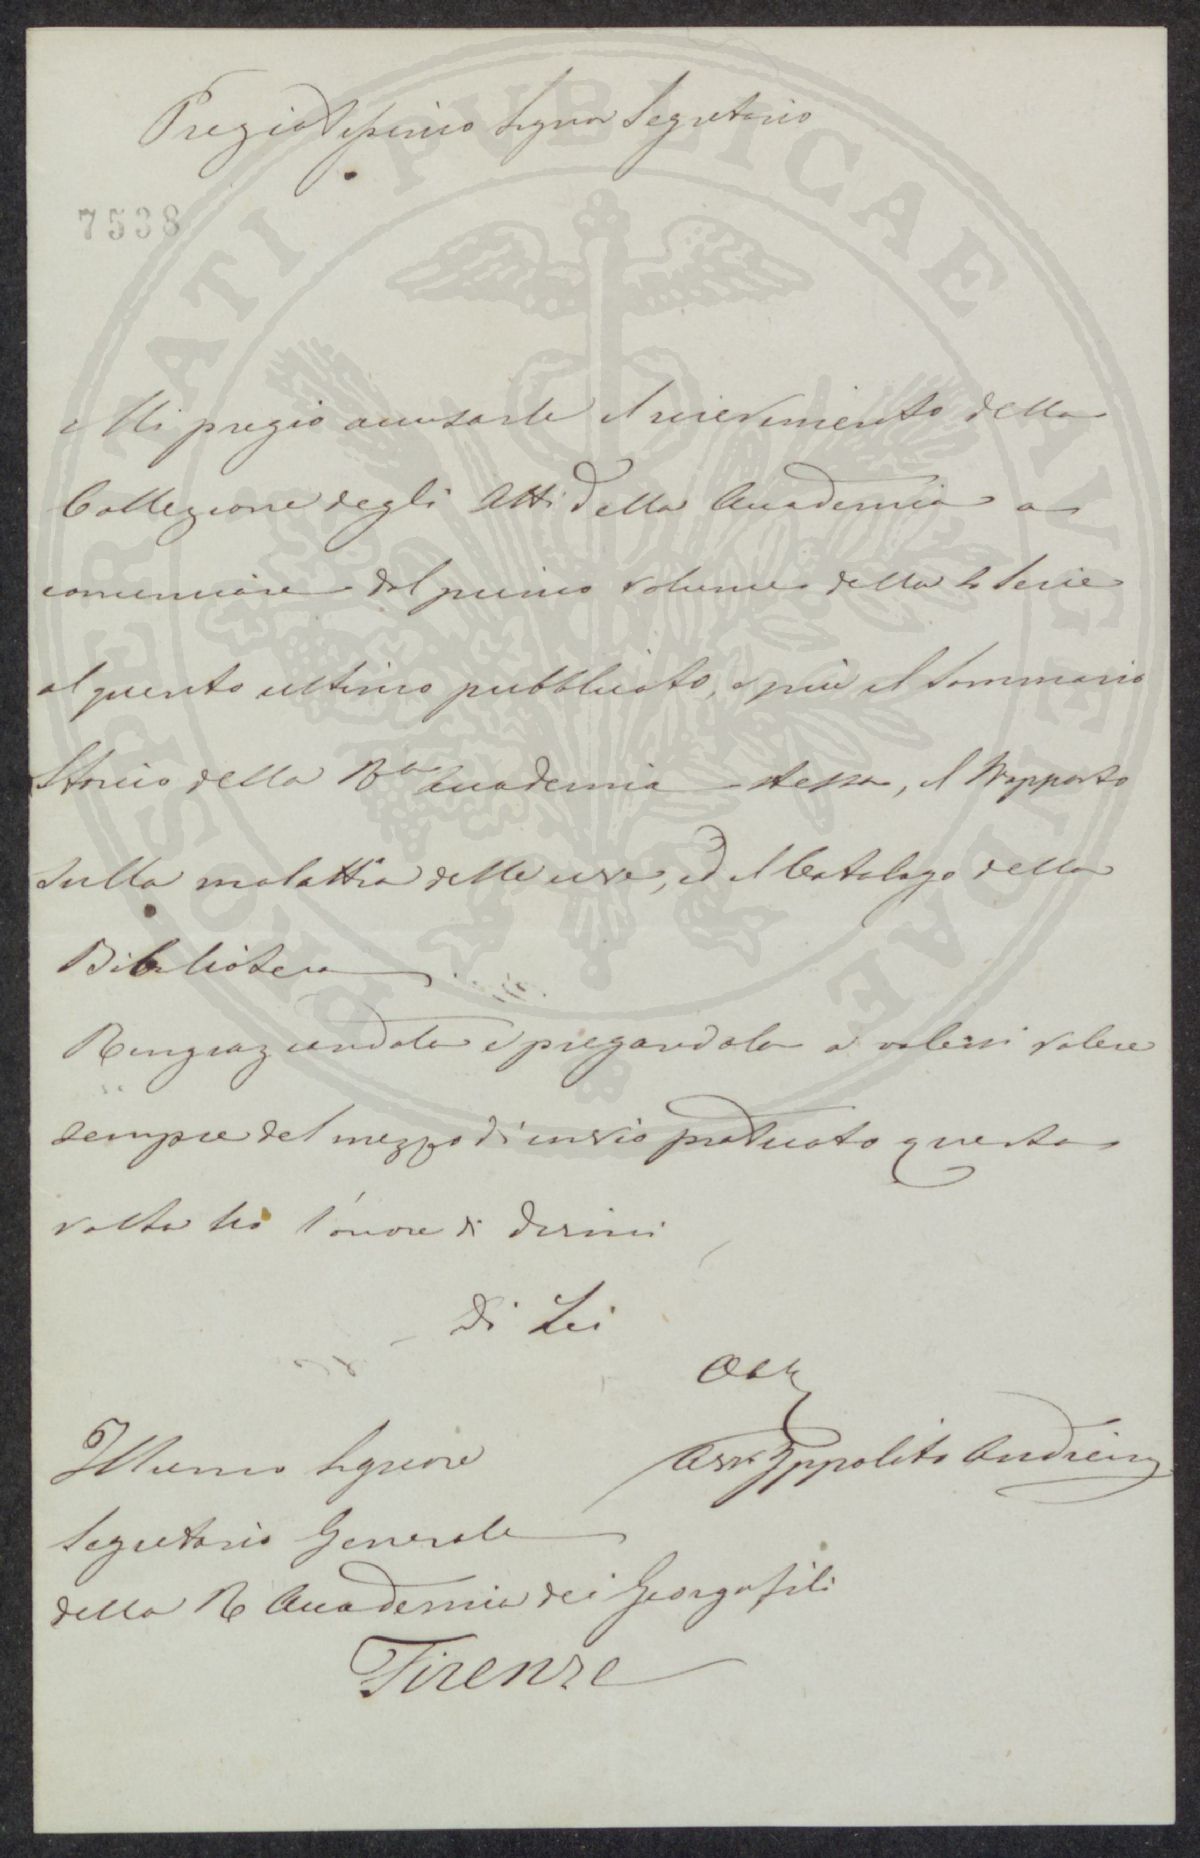 Pregiatissimo Signor Segretario
7538
Mi pregio accusarle il ricevimento della
Collezione degli Atti della Accademia a
cominciare dal primo volume della 2 Serie
al quinto ultimo pubblicato, e più il Sommario
Storico della Rle Accademia stessa, il Rapporto
sulla malattia delle uve, ed il Catalogo della
Biblioteca
Ringraziandola e pregandola a volersi valere
sempre del mezzo di invio praticato questa
volta ho l'onore di dirmi
Di Lei
Illumo Signore
Avv Yppolito Andreini
Segretario Generale
della R Accademia dei Georgofili
Firenze
PROSPERITATI PUBLICAE AUGENDAE